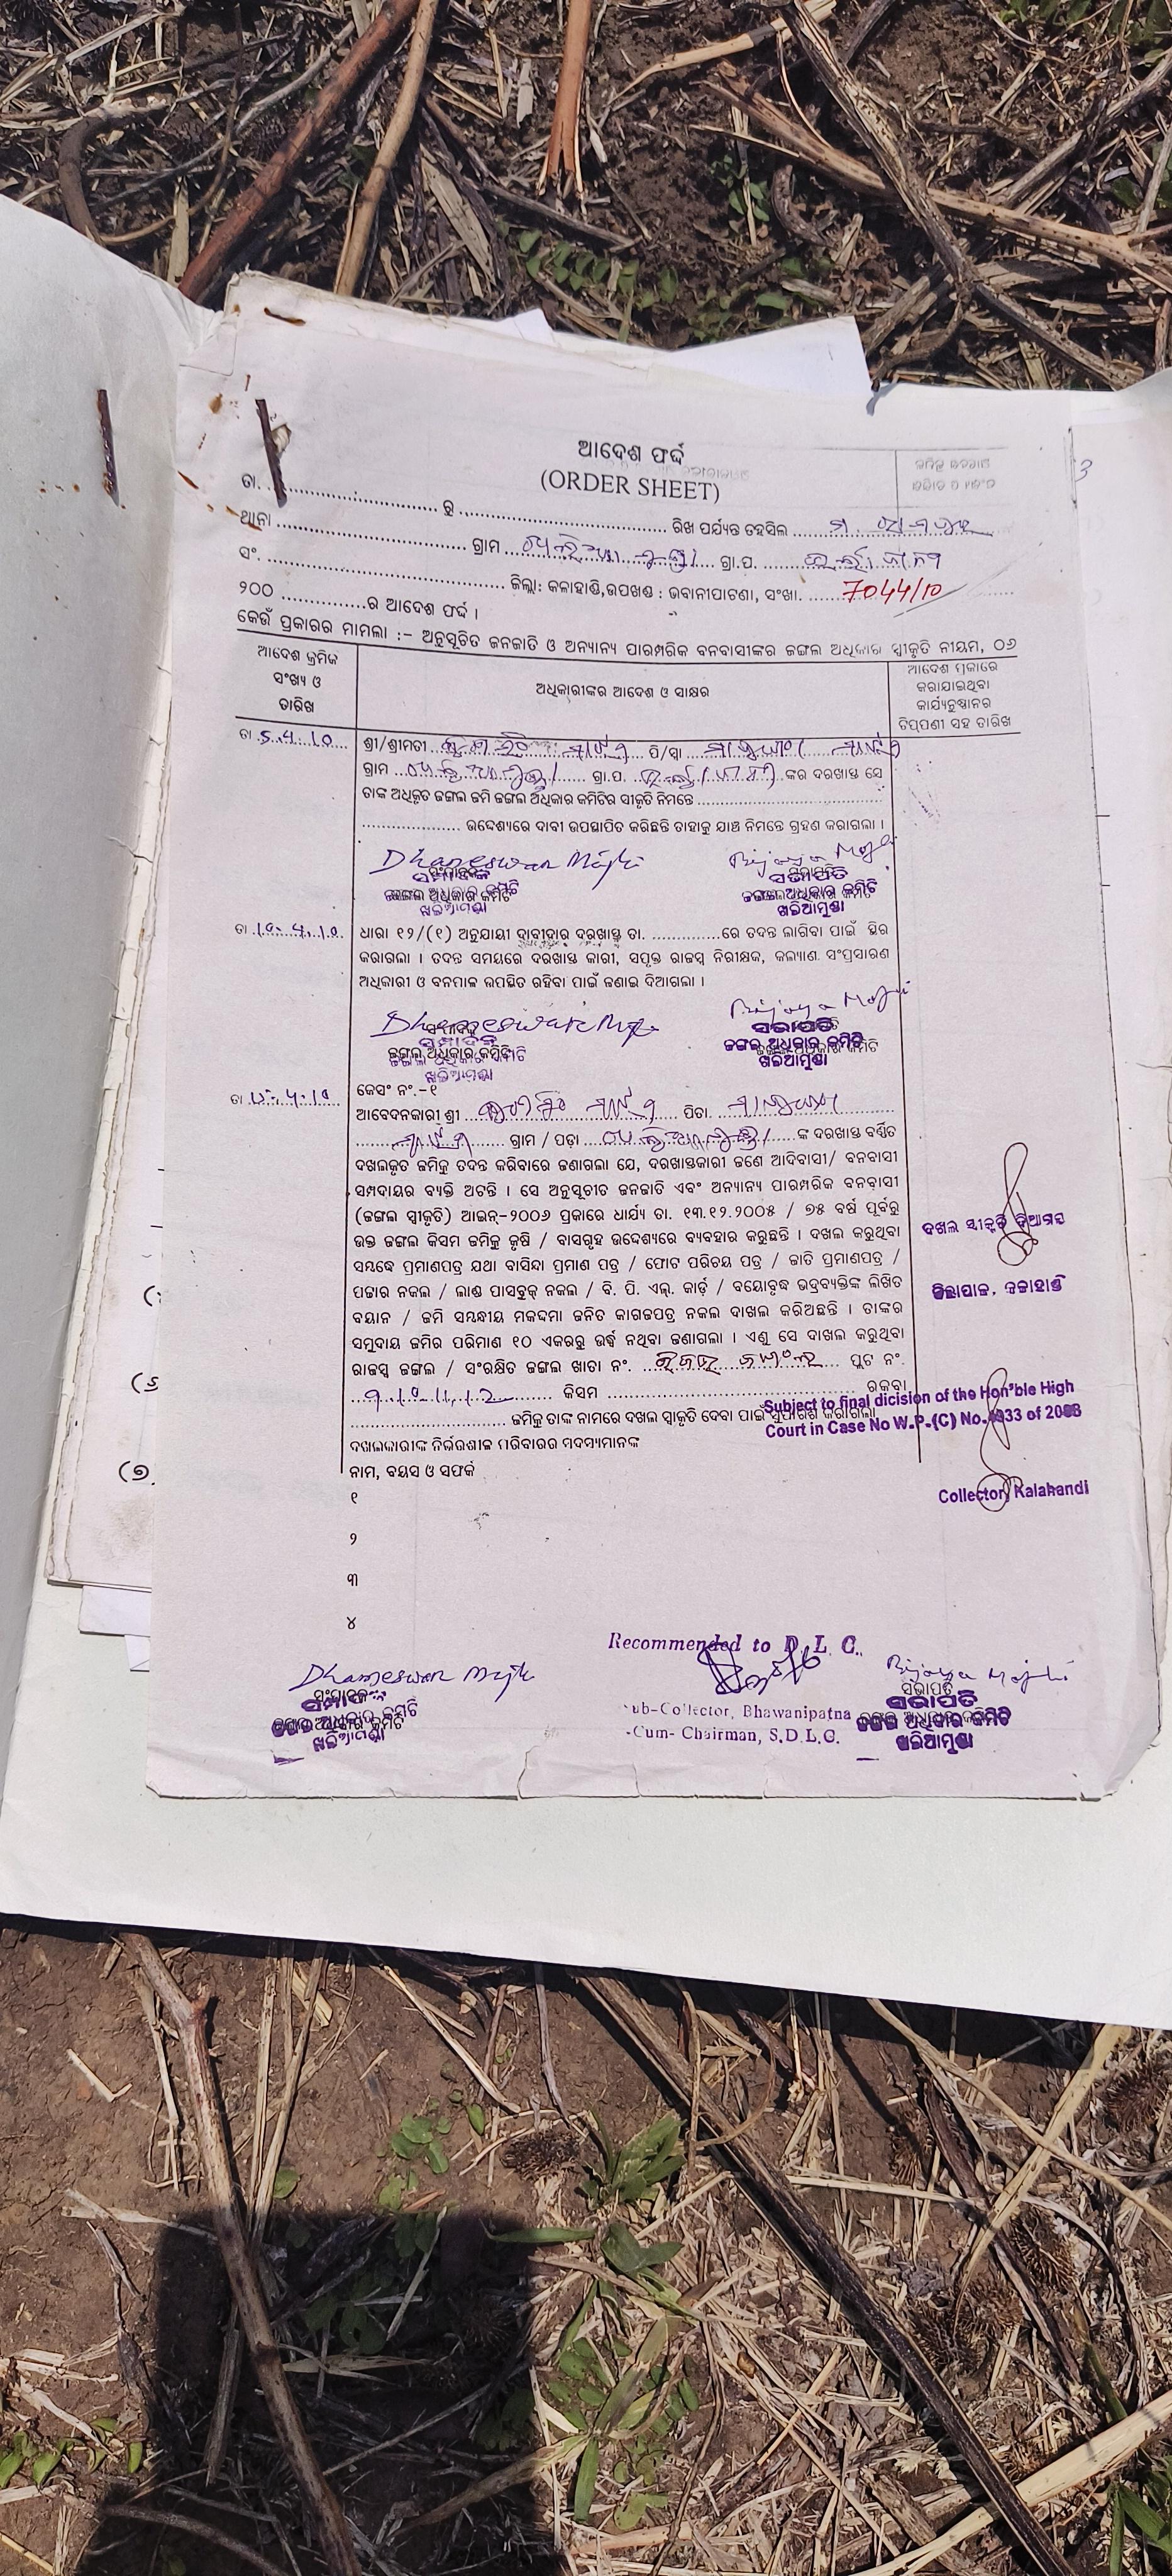 ଆଦେଶ ଫର୍ଦ୍ଦ
(ORDER SHEET)
3
ତା. ................ ରୁ ................ ରିଖ ପର୍ଯ୍ୟନ୍ତ ତହସିଲ
ଥାନା ................ ଗ୍ରାମ ................ ଗ୍ରା.ପ. ................
ସଂ. ................ ଜିଲ୍ଲା: କଳାହାଣ୍ଡି,ଉପଖଣ୍ଡ : ଭବାନୀପାଟଣା, ସଂଖା. 7044/10
୨୦୦ ................ର ଆଦେଶ ଫର୍ଦ୍ଦ ।
କେଉଁ ପ୍ରକାରର ମାମଲା :- ଅନୁସୂଚିତ ଜନଜାତି ଓ ଅନ୍ୟାନ୍ୟ ପାରମ୍ପରିକ ବନବାସୀଙ୍କର ଜଙ୍ଗଲ ଅଧିକାର ସ୍ୱୀକୃତି ନୀୟମ, ୦୬
ଆଦେଶ କ୍ରମିକ
ସଂଖ୍ୟ ଓ
ତାରିଖ
ଅଧିକାରୀଙ୍କର ଆଦେଶ ଓ ସାକ୍ଷର
ଆଦେଶ ମୂକାରେ
କରାଯାଇଥିବା
କାର୍ଯ୍ୟନୁଷ୍ଠାନର
ଟିପ୍ପଣୀ ସହ ତାରିଖ
ତା 5.4.10 ଶ୍ରୀ/ଶ୍ରୀମତୀ ................ ପି/ସ୍ୱା ................
ଗ୍ରାମ ................ ଗ୍ରା.ପ. ................ ଙ୍କର ଦରଖାସ୍ତ ସେ
ତାଙ୍କ ଅଧିକୃତ ଜଙ୍ଗଲ ଜମି ଜଙ୍ଗଲ ଅଧିକାର କମିଟିର ସ୍ୱୀକୃତି ନିମନ୍ତେ ................
................ ଉଦ୍ଦେଶ୍ୟରେ ଦାବୀ ଉପସ୍ଥାପିତ କରିଛନ୍ତି ତାହାକୁ ଯାଞ୍ଚ ନିମନ୍ତେ ଗ୍ରହଣ କରାଗଲା ।
Dhaneswar Majhi Bijaya Majhi
ସଂପାଦକ ସଭାପତି
ଜଙ୍ଗଲ ଅଧିକାର କମିଟି ଜଙ୍ଗଲ ଅଧିକାର କମିଟି
ଖଲିଆମୁଣ୍ଡା ଖଲିଆମୁଣ୍ଡା
ତା 10.4.10 ଧାରା ୧୨/(୧) ଅନୁଯାୟୀ ଦାବୀଦାର ଦରଖାସ୍ତ ତା. ................ରେ ତଦନ୍ତ ଲାଗିବା ପାଇଁ ସ୍ଥିର
କରାଗଲା । ତଦନ୍ତ ସମୟରେ ଦରଖାସ୍ତ କାରୀ, ସମ୍ପୃକ୍ତ ରାଜସ୍ୱ ନିରୀକ୍ଷକ, କଲ୍ୟାଣ ସଂପ୍ରସାରଣ
ଅଧିକାରୀ ଓ ବନପାଳ ଉପସ୍ଥିତ ରହିବା ପାଇଁ ଜଣାଇ ଦିଆଗଲା ।
Dhaneswar Majhi Bijaya Majhi
ସଂପାଦକ ସଭାପତି
ଜଙ୍ଗଲ ଅଧିକାର କମିଟି ଜଙ୍ଗଲ ଅଧିକାର କମିଟି
ଖଲିଆମୁଣ୍ଡା ଖଲିଆମୁଣ୍ଡା
କେସଂ ନଂ.-୧
ତା ଆବେଦନକାରୀ ଶ୍ରୀ ................ ପିତା ................
................ ଗ୍ରାମ / ପଡ଼ା ................ ଙ୍କ ଦରଖାସ୍ତ ବର୍ଣ୍ଣିତ
ଦଖଲକୃତ ଜମିକୁ ତଦନ୍ତ କରିବାରେ ଜଣାଗଲା ଯେ, ଦରଖାସ୍ତକାରୀ ଜଣେ ଆଦିବାସୀ/ ବନବାସୀ
ସମ୍ପଦାୟର ବ୍ୟକ୍ତି ଅଟନ୍ତି । ସେ ଅନୁସୂଚୀତ ଜନଜାତି ଏବଂ ଅନ୍ୟାନ୍ୟ ପାରମ୍ପରିକ ବନବାସୀ
(ଜଙ୍ଗଲ ସ୍ୱୀକୃତି) ଆଇନ୍-୨୦୦୬ ପ୍ରକାରେ ଧାର୍ଯ୍ୟ ତା. ୧୩.୧୨.୨୦୦୫ / ୭୫ ବର୍ଷ ପୂର୍ବରୁ
ଉକ୍ତ ଜଙ୍ଗଲ କିସମ ଜମିକୁ କୃଷି / ବାସଗୃହ ଉଦ୍ଦେଶ୍ୟରେ ବ୍ୟବହାର କରୁଛନ୍ତି । ଦଖଲ କରୁଥିବା
ସମ୍ବନ୍ଧେ ପ୍ରମାଣପତ୍ର ଯଥା ବାସିନ୍ଦା ପ୍ରମାଣ ପତ୍ର / ଫୋଟ ପରିଚୟ ପତ୍ର / ଜାତି ପ୍ରମାଣପତ୍ର /
ପଟ୍ଟାର ନକଲ / ଲାଣ୍ଡ ପାସବୁକ୍ ନକଲ / ବି. ପି. ଏଲ୍. କାର୍ଡ଼ / ବୟୋବୃଦ୍ଧ ଭଦ୍ରବ୍ୟକ୍ତିଙ୍କ ଲିଖିତ
ବୟାନ / ଜମି ସମ୍ବନ୍ଧୀୟ ମକଦ୍ଦମା ଜନିତ କାଗଜପତ୍ର ନକଲ ଦାଖଲ କରିଅଛନ୍ତି । ତାଙ୍କର
ସମୁଦାୟ ଜମିର ପରିମାଣ ୧୦ ଏକରରୁ ଉର୍ଦ୍ଧ୍ୱ ନଥିବା ଜଣାଗଲା । ଏଣୁ ସେ ଦାଖଲ କରୁଥିବା
ରାଜସ୍ୱ ଜଙ୍ଗଲ / ସଂରକ୍ଷିତ ଜଙ୍ଗଲ ଖାତା ନଂ. ................ ପ୍ଲଟ ନଂ.
................ କିସମ ................ ରକବା
................ ଜମିକୁ ତାଙ୍କ ନାମରେ ଦଖଲ ସ୍ୱୀକୃତି ଦେବା ପାଇଁ ସୁପାରିଶ କରାଗଲା
ଦଖଲକାରୀଙ୍କ ନିର୍ଭରଶୀଳ ପରିବାରର ସଦସ୍ୟମାନଙ୍କ
ନାମ, ବୟସ ଓ ସଫର୍କ
୧
୨
୩
୪
ଦଖଲ ସ୍ୱୀକୃତି ଦିଆଗଲା
ଜିଲ୍ଲାପାଳ, କଳାହାଣ୍ଡି
Subject to final dicision of the Hon'ble High
Court in Case No W.P.(C) No.4933 of 2008
Collector, Kalahandi
Recommended to D.L.C.
Dhaneswar Majhi Bijaya Majhi
ସଂପାଦକ ସଭାପତି
ଜଙ୍ଗଲ ଅଧିକାର କମିଟି ଜଙ୍ଗଲ ଅଧିକାର କମିଟି
ଖଲିଆମୁଣ୍ଡା ଖଲିଆମୁଣ୍ଡା
ub-Collector, Bhawanipatna
-Cum- Chairman, S.D.L.C.